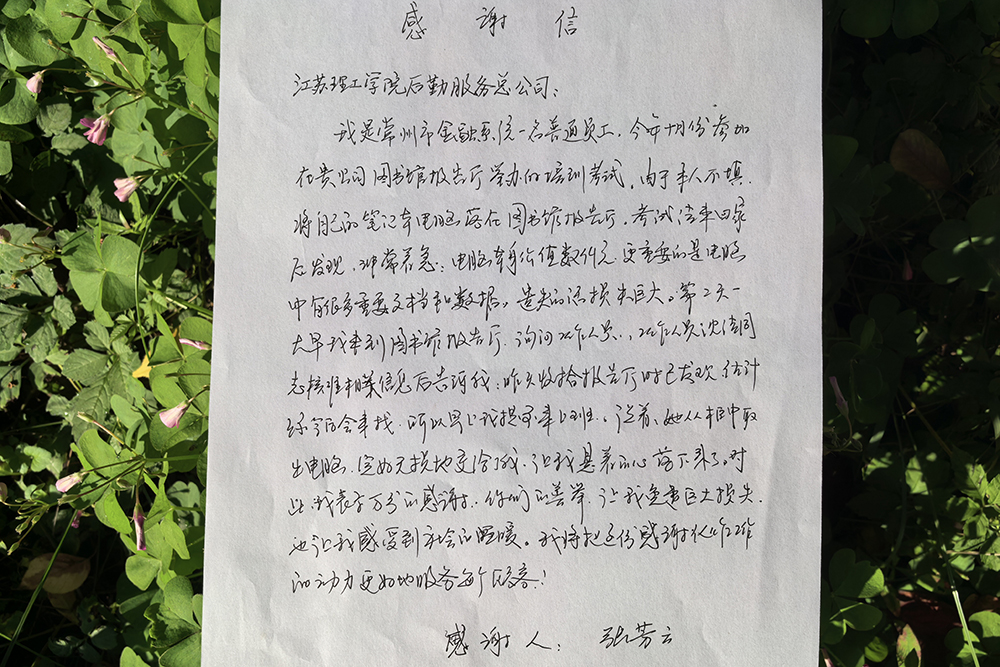 感谢信
江苏理工学院后勤服务总公司：
我是常州市金融系统一名普通员工，今年十月份参加
在贵公司图书馆报告厅举办的培训考试，由于本人不慎，
将自己的笔记本电脑落在图书馆报告厅，考试结束回家
后发现，非常着急：电脑本身价值数仟元，更重要的是电脑
中有很多重要文档和数据，遗失的话损失巨大。第二天一
大早我来到图书馆报告厅，询问工作人员，工作人员沈洁同
志核准相关信息后告诉我：昨天收拾报告厅时已发现，估计
你今日会来找，所以早上我提早来上班。说着，她从柜中取
出电脑，完好无损地交给了我，让我悬着的心落下来了。对
此，我表示万分的感谢，你们的善举，让我免遭巨大损失，
也让我感受到社会的温暖。我将把这份感谢化作工作
的动力更好地服务每个顾客！
感谢人：张芳云